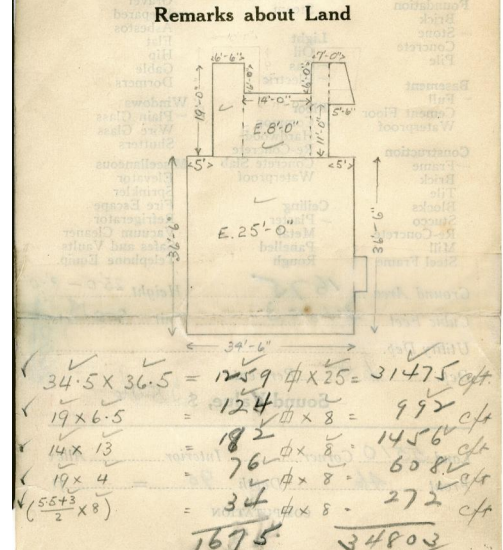 Remarks about Land
6'-6"
7'-0"
19'-0"
6'-0"
6'-0"
14'-0"
5'-6"
E. 8'-0"
11'-0"
5'
5'
E. 25'-0"
36'-6"
36'-6"
34'-6"
34.5 x 36.5 = 1259 ⌀ x 25 = 31475 c/ft.
19 x 6.5 = 124 ⌀ x 8 = 992 c/ft
14 x 13 = 182 ⌀ x 8 = 1456 c/ft
19 x 4 = 76 ⌀ x 8 = 608 c/ft
(5.5+3/2 x 8) = 34 ⌀ x 8 - 272 c/ft
1675. 34803